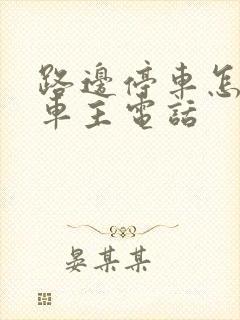 路邊停車怎
車主電話
晏某某